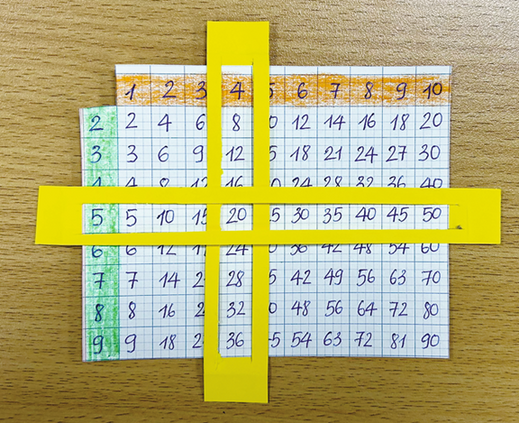 1 2 3 4 5 6 7 8 9 10
2 2 4 6 8 0 12 14 16 18 20
3 3 6 9 12 5 18 21 24 27 30
4 4 8 12 16 24 28 32 36 40
5 5 10 15 20 30 35 40 45 50
6 6 12 1 24 36 42 48 54 60
7 7 14 2 28 5 42 49 56 63 70
8 8 16 2 32 0 48 56 64 72 80
9 9 18 2 36 5 54 63 72 81 90